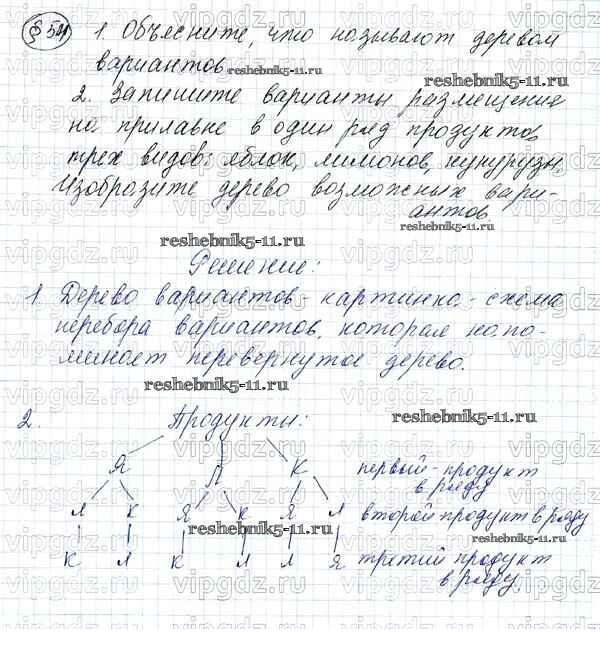 § 54
1. Объясните, что называют деревом
вариантов.
2. Запишите варианты размещения
на прилавке в один ряд продуктов
трех видов: яблок, лимонов, кукурузы.
Изобразите дерево возможных вари-
антов.
Решение:
1. Дерево вариантов - картинка - схема
перебора вариантов, которая напо-
минает перевернутое дерево.
2. Продукты:
Я Л К первый - продукт
в ряду
Л К Я К Я Л второй продукт в ряду
К Л К Я Л Я третий продукт
в ряду
reshebnik5-11.ru
vipgdz.ru